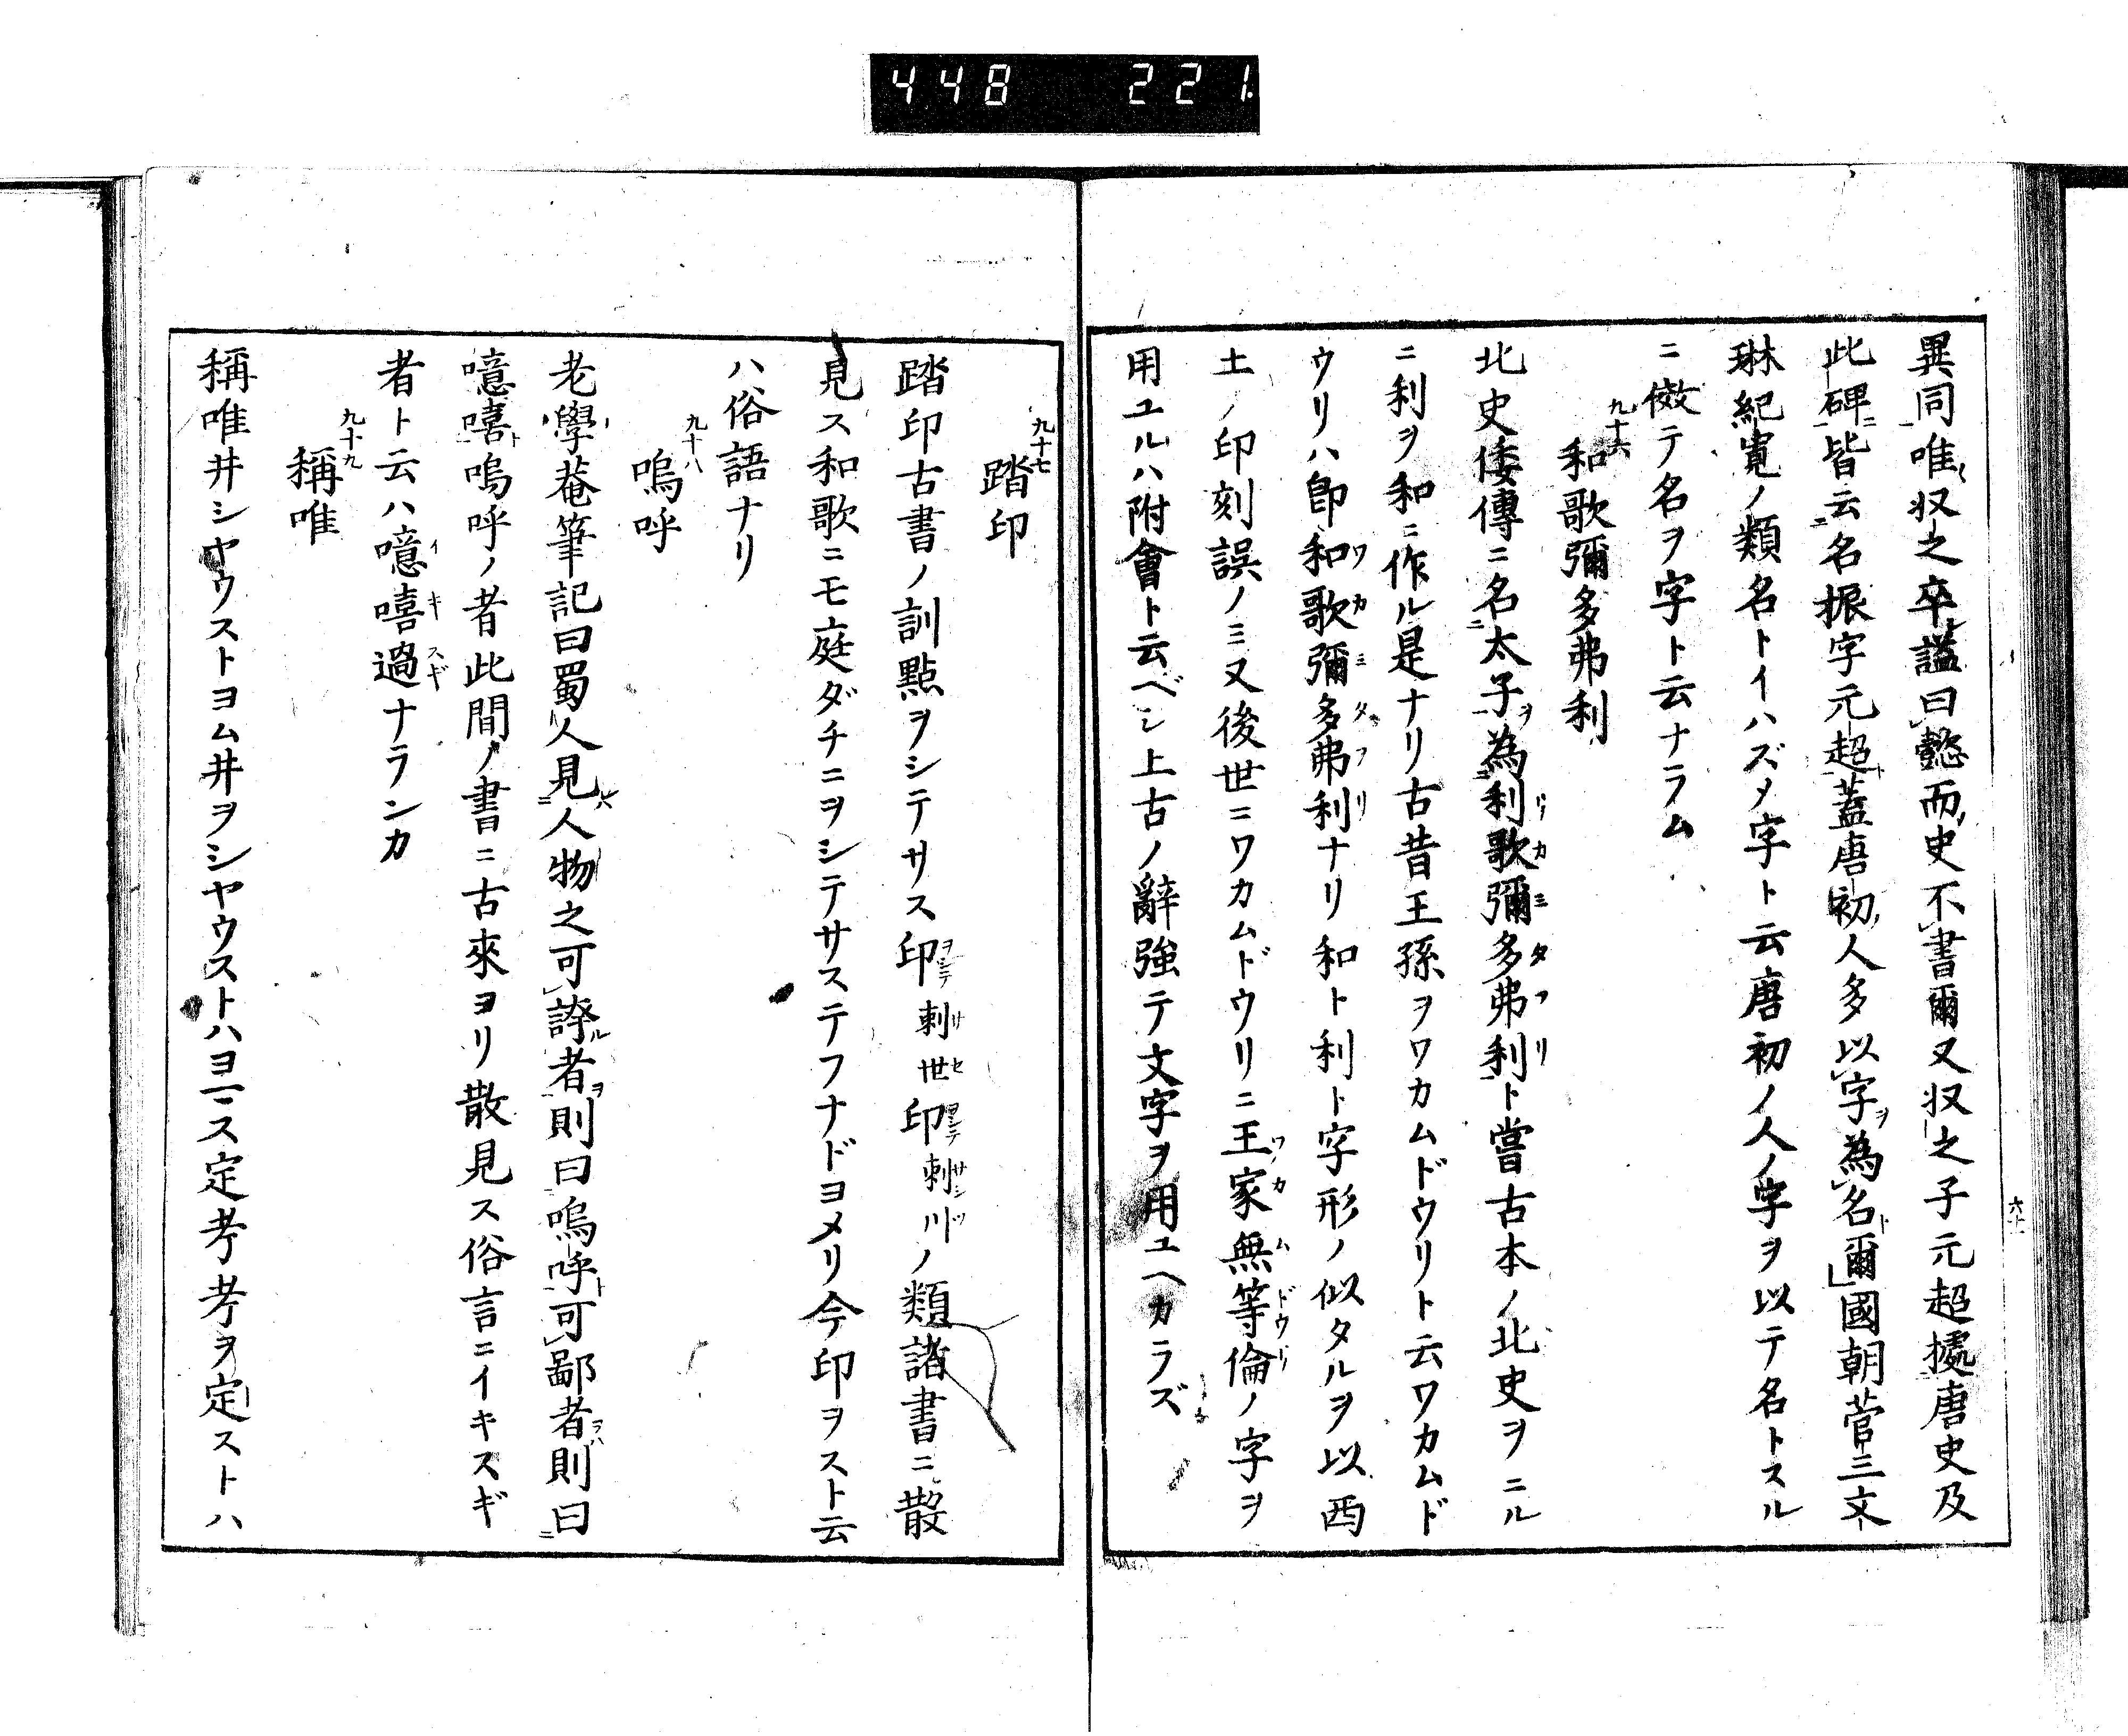 448 221.
異同唯収之卒謚曰懿而史不書爾又収之子元超據唐史及
此碑皆云名振字元超蓋唐初人多以字為名爾國朝菅三文
琳紀寛ノ類名トイハズメ字ト云唐初ノ人ノ字ヲ以テ名トスル
ニ傚テ名ヲ字ト云ナラム
九十六
和歌彌多弗利
北史倭傳ニ名太子為利歌彌多弗利ト當古本ノ北史ヲニル
ニ利ヲ和ニ作ル是ナリ古昔王孫ヲワカムドウリト云ワカムド
ウリハ卽和歌彌多弗利ナリ和ト利ト字形ノ似タルヲ以西
土ノ印刻誤ノミ又後世ニワカムドウリニ王家無等倫ノ字ヲ
用ユルハ附會ト云ベシ上古ノ辭強テ文字ヲ用ユヘカラズ
六十一
九十七
踏印
踏印古書ノ訓點ヲシテサス印刺世印刺川ノ類諸書ニ散
見ス和歌ニモ庭ダチニヲシテサステフナドヨメリ今印ヲスト云
ハ俗語ナリ
九十八
嗚呼
老學菴筆記曰蜀人見人物之可誇者則曰嗚呼可鄙者則曰
噫嘻嗚呼ノ者此間ノ書ニ古來ヨリ散見ス俗言ニイキスギ
者ト云ハ噫嘻過ナランカ
九十九
稱唯
稱唯井シヤウストヨム井ヲシヤウストハヨニス定考考ヲ定ストハ